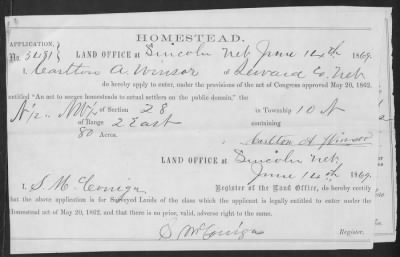 HOMESTEAD.
APPLICATION,
No. LAND OFFICE at Lincoln Neb June 14th 1869.
I, Carlton A. Winsor of Seward Co, Neb
do hereby apply to enter, under the provisions of the act of Congress approved May 20, 1862,
entitled "An act to secure homesteads to actual settlers on the public domain," the
N 1/2 NW 1/4 of Section 28 in Township 10 N
of Range 2 East containing
80 Acres.
Carlton A Winsor
LAND OFFICE at Lincoln Neb
June 14th 1869.
I, S McConiga Register of the Land Office, do hereby certify
that the above application is for Surveyed Lands of the class which the applicant is legally entitled to enter under the
Homestead act of May 20, 1862, and that there is no prior, valid, adverse right to the same.
S McConiga
Register.